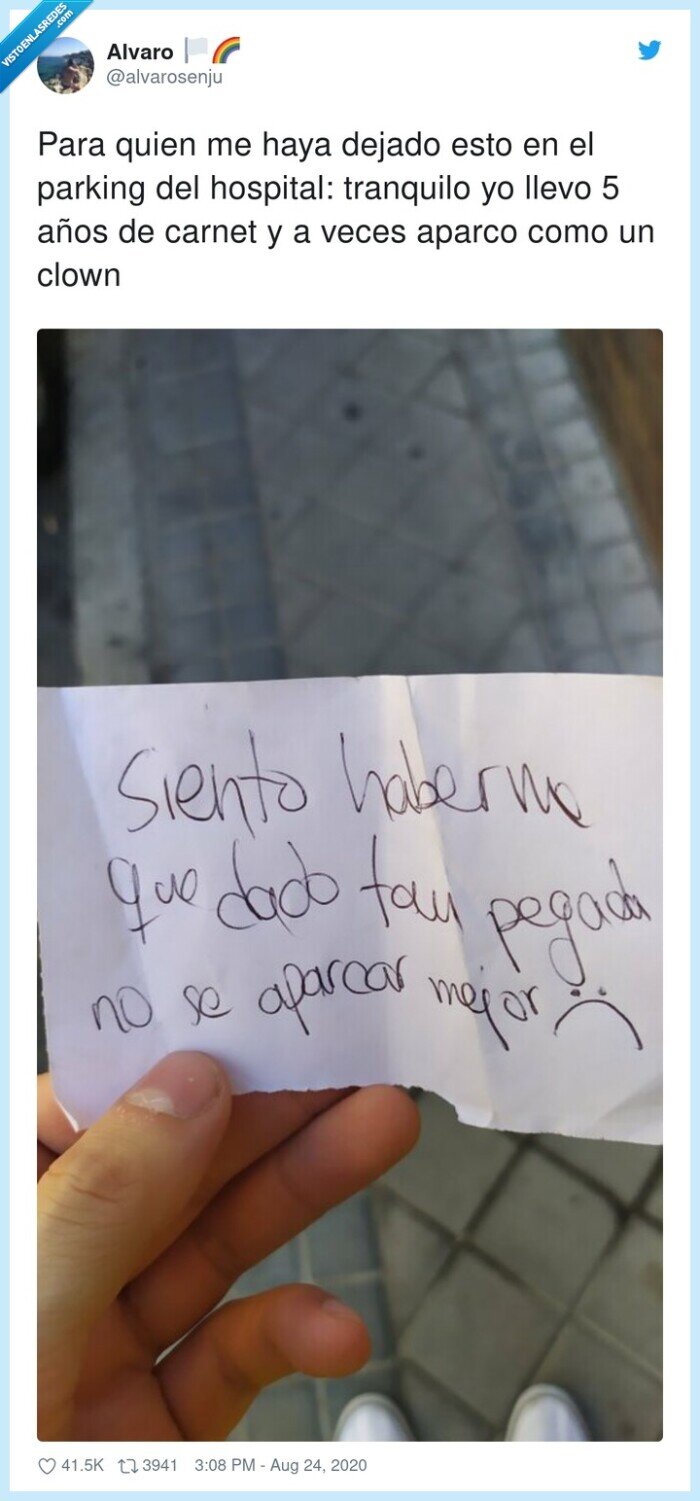 VISTOENLASREDES
.com
Alvaro 🏳️🌈
@alvarosenju
Para quien me haya dejado esto en el
parking del hospital: tranquilo yo llevo 5
años de carnet y a veces aparco como un
clown
Siento haberme
quedado tan pegada
no se aparcar mejor :(
41.5K 3941 3:08 PM - Aug 24, 2020